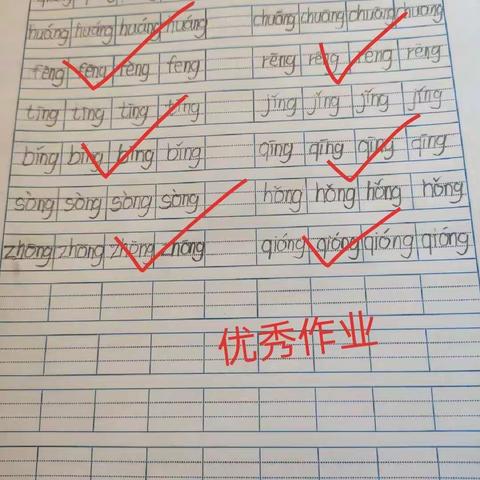 huáng huáng huáng huáng chuāng chuāng chuāng chuāng
fēng fēng fēng fēng rēng rēng rēng rēng
tīng tīng tīng tīng jǐng jǐng jǐng jǐng
bǐng bǐng bǐng bǐng qīng qīng qīng qīng
sòng sòng sòng sòng hǒng hǒng hǒng hǒng
zhōng zhōng zhōng zhōng qióng qióng qióng qióng
优秀作业